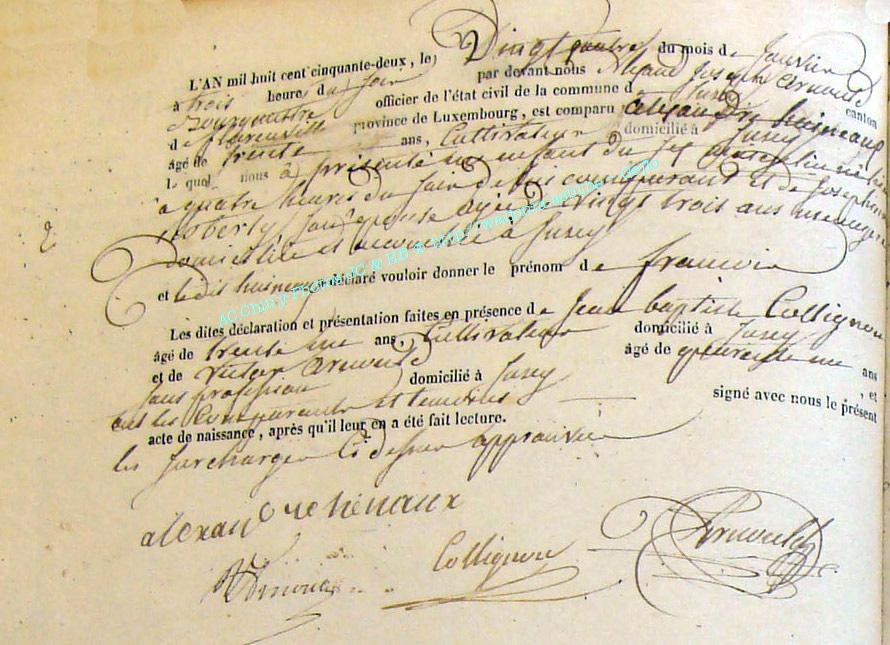 L'AN mil huit cent cinquante-deux, le Vingt quatre du mois de Janvier
à trois heure du soir par devant nous Joseph Arnould
Bourgmestre officier de l'état civil de la commune de Jusey canton
de florenville province de Luxembourg, est comparu alexandre
âgé de trente ans, Cultivateur domicilié à Jusey
le quel nous à présenté un enfant du sex né hier
à quatre heures du soir de lui comparant et de Josephine
Roberty, son épouse agée de vingt trois ans menagere
domiciliée et accouchée à Jusey
et le dit déclaré vouloir donner le prénom de francois
Les dites déclaration et présentation faites en présence de Jean baptiste Collignon
âgé de trente un ans, Cultivateur domicilié à Jusey
et de victor Arnould âgé de quarante un ans
sans profession domicilié à Jusey , et
ont les comparants et temoins signé avec nous le présent
acte de naissance, après qu'il leur en a été fait lecture.
les surcharges ci dessus approuvées
Collignon Arnould